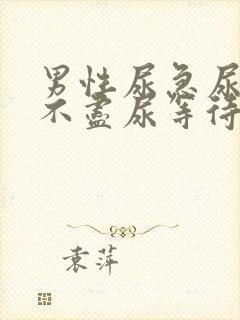 男性尿急尿
不盡尿等待
袁萍